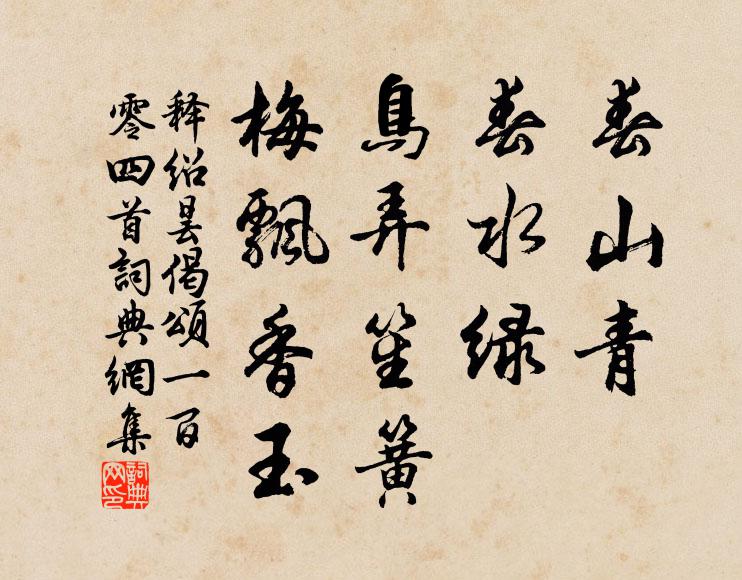 春山青
春水绿
鳥弄笙簧
梅飄香玉
释绍昙偈頌一百
零四首詞典網集
詞典网印